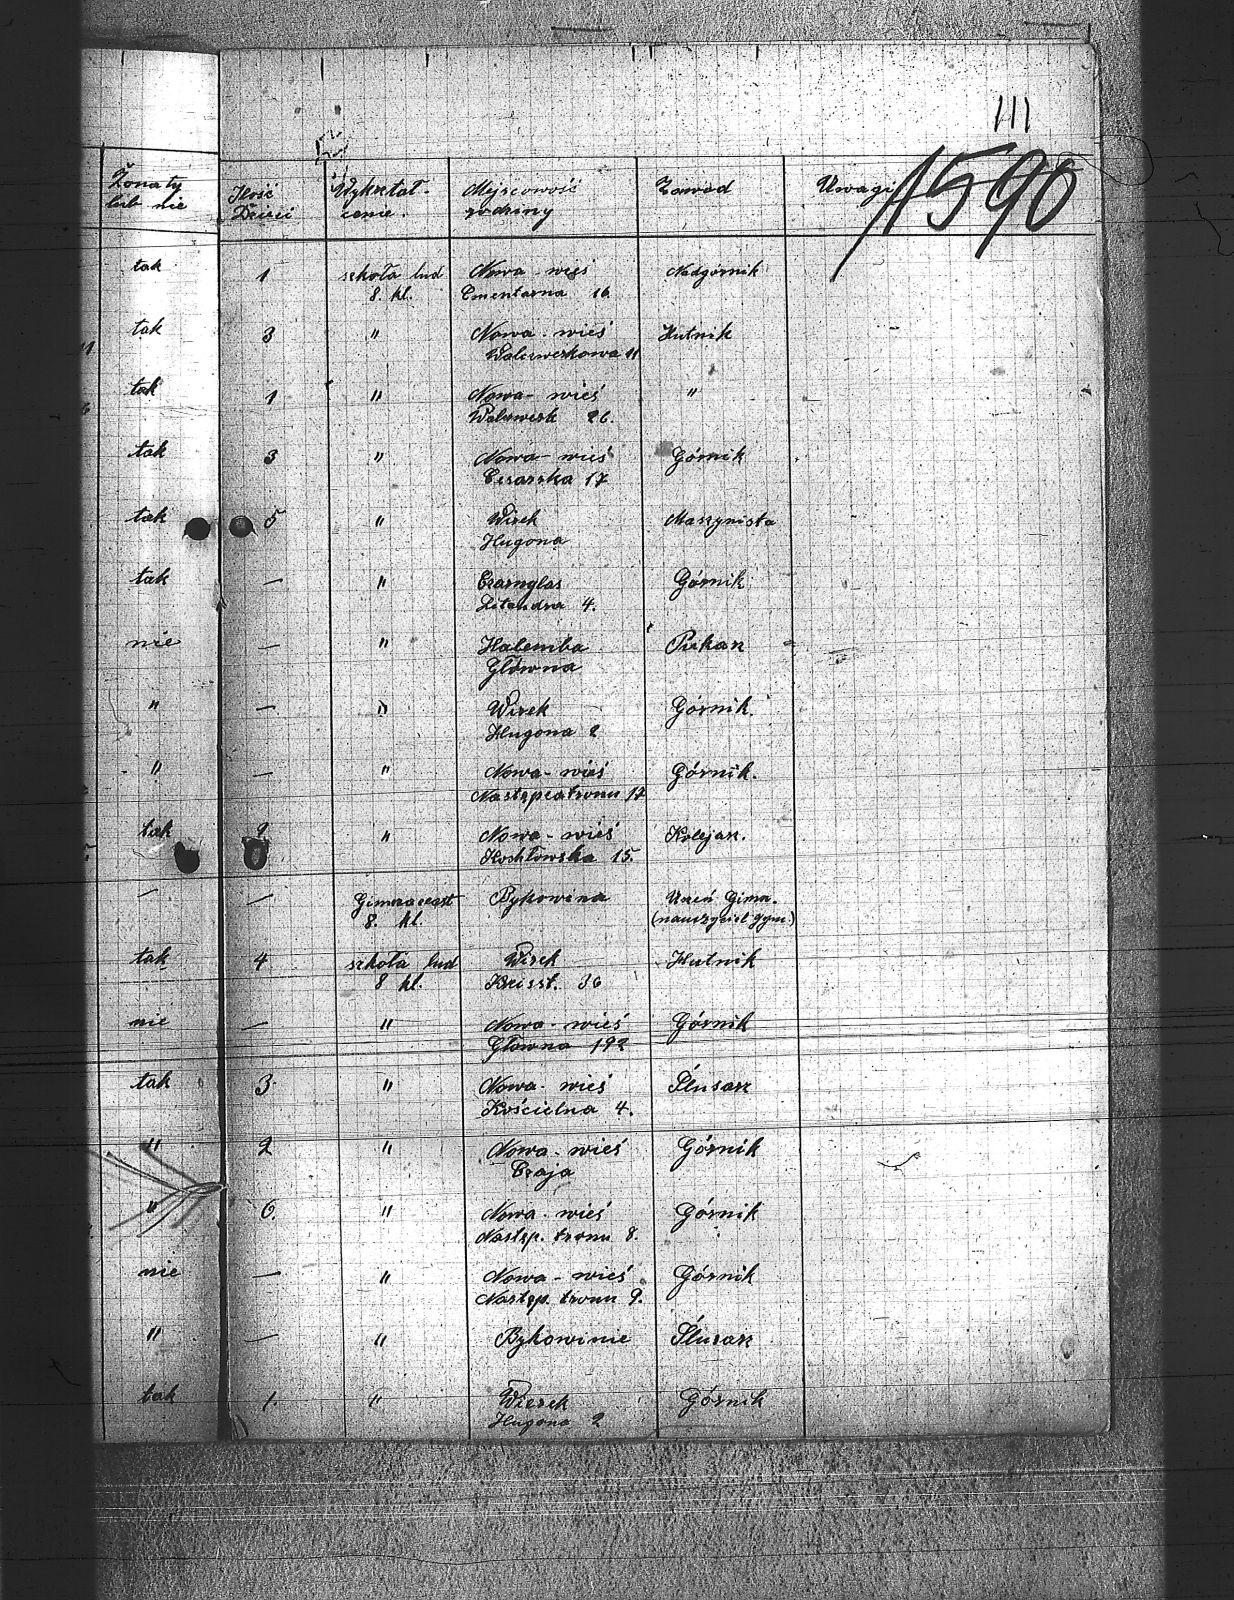 111
1590
Żonaty lub nie | Ilość Dzieci | Wykształcenie. | Miejscowość rodziny | Zawód | Uwagi
tak 1 szkoła lud Nowa-wieś Nadgórnik
8. kl. Cmentarna 16.
tak 3 " Nowa-wieś Hutnik
11
tak 1 " Nowa-wieś "
26.
tak 3 " Nowa-wieś Górnik
Cesarska 17
tak 5 " Wirek Maszynista
Hugona
tak — " Czarnylas Górnik
4.
nie — " Halemba
Główna
" — " Wirek Górnik.
Hugona 2
" — " Nowa-wieś Górnik.
Następcatronu 17
tak " Nowa-wieś Kolejarz.
Kochłowska 15.
— — Bykowina Uczeń Gimn.
8. kl. (nauczyciel gym.)
tak 4 szkoła lud Wirek Hutnik
8 kl. 36
nie — " Nowa-wieś Górnik
Główna 192
tak 3 " Nowa-wieś Ślusarz
Kościelna 4.
" 2 " Nowa-wieś Górnik
Czaja
" 6. " Nowa-wieś Górnik
Następ. tronu 8.
nie — " Nowa-wieś Górnik
Następ. tronu 9.
" — " Bykowinie Ślusarz
tak 1. " Wierek Górnik
Hugona 2